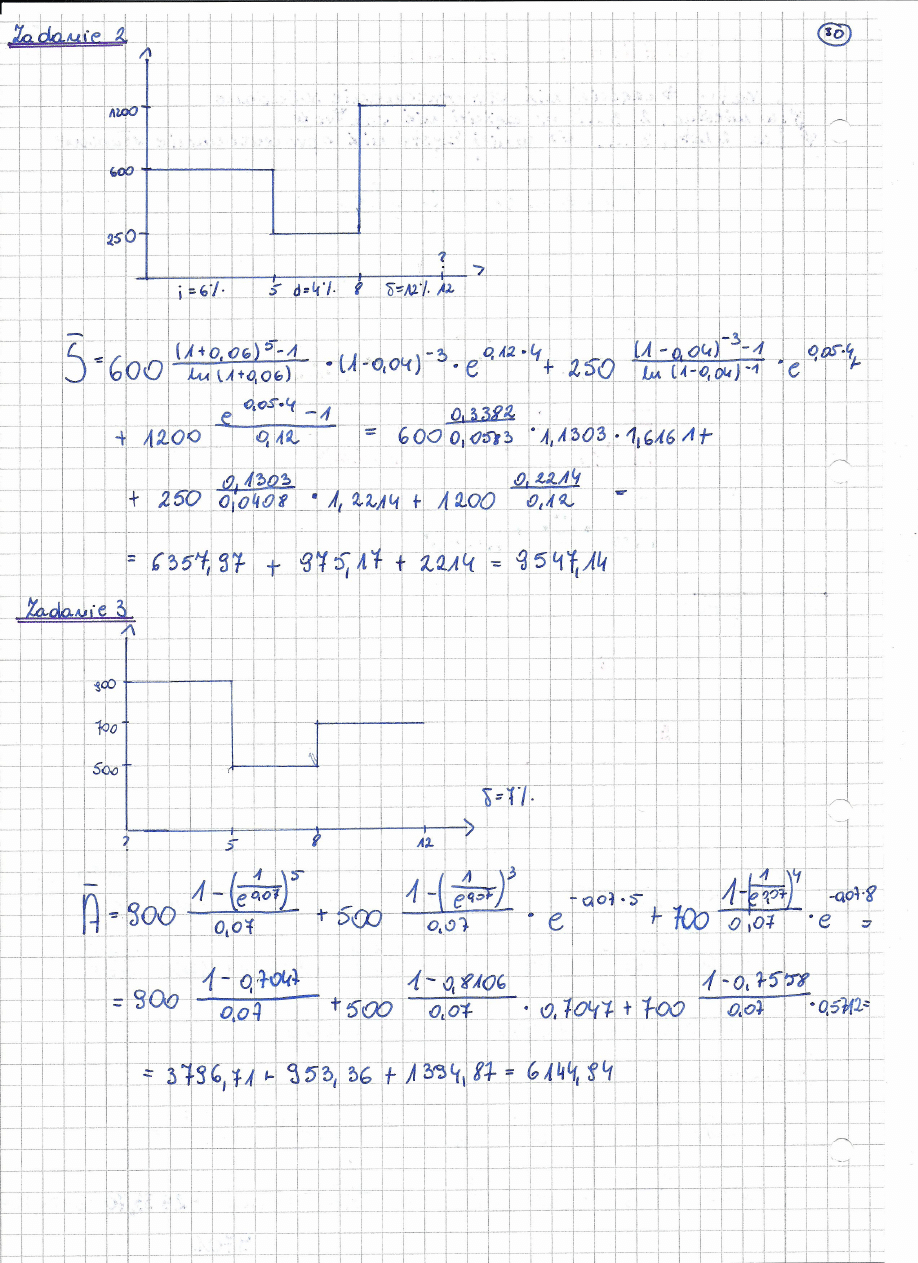 Zadanie 2
30
1200
600
250
?
i=6% 5 d=4% 8 δ=12% 12
S̄ = 600 ((1+0,06)^5 - 1)/(ln(1+0,06)) · (1-0,04)^-3 · e^(0,12·4) + 250 ((1-0,04)^-3 - 1)/(ln(1-0,04)^-1) · e^(0,05·4) +
+ 1200 (e^(0,05·4) - 1)/(0,12) = 600 (0,3382)/(0,0583) · 1,1303 · 1,6161 +
+ 250 (0,1303)/(0,0408) · 1,2214 + 1200 (0,2214)/(0,12) =
= 6357,97 + 975,17 + 2214 = 9547,14
Zadanie 3
900
700
500
δ=7%.
? 5 8 12
Ā = 900 (1-(1/e^0,07)^5)/(0,07) + 500 (1-(1/e^0,07)^3)/(0,07) · e^(-0,07·5) + 700 (1-(1/e^0,07)^4)/(0,07) · e^(-0,07·8) =
= 900 (1-0,7047)/(0,07) + 500 (1-0,8106)/(0,07) · 0,7047 + 700 (1-0,7558)/(0,07) · 0,5712 =
= 3796,71 + 953,36 + 1394,87 = 6144,94